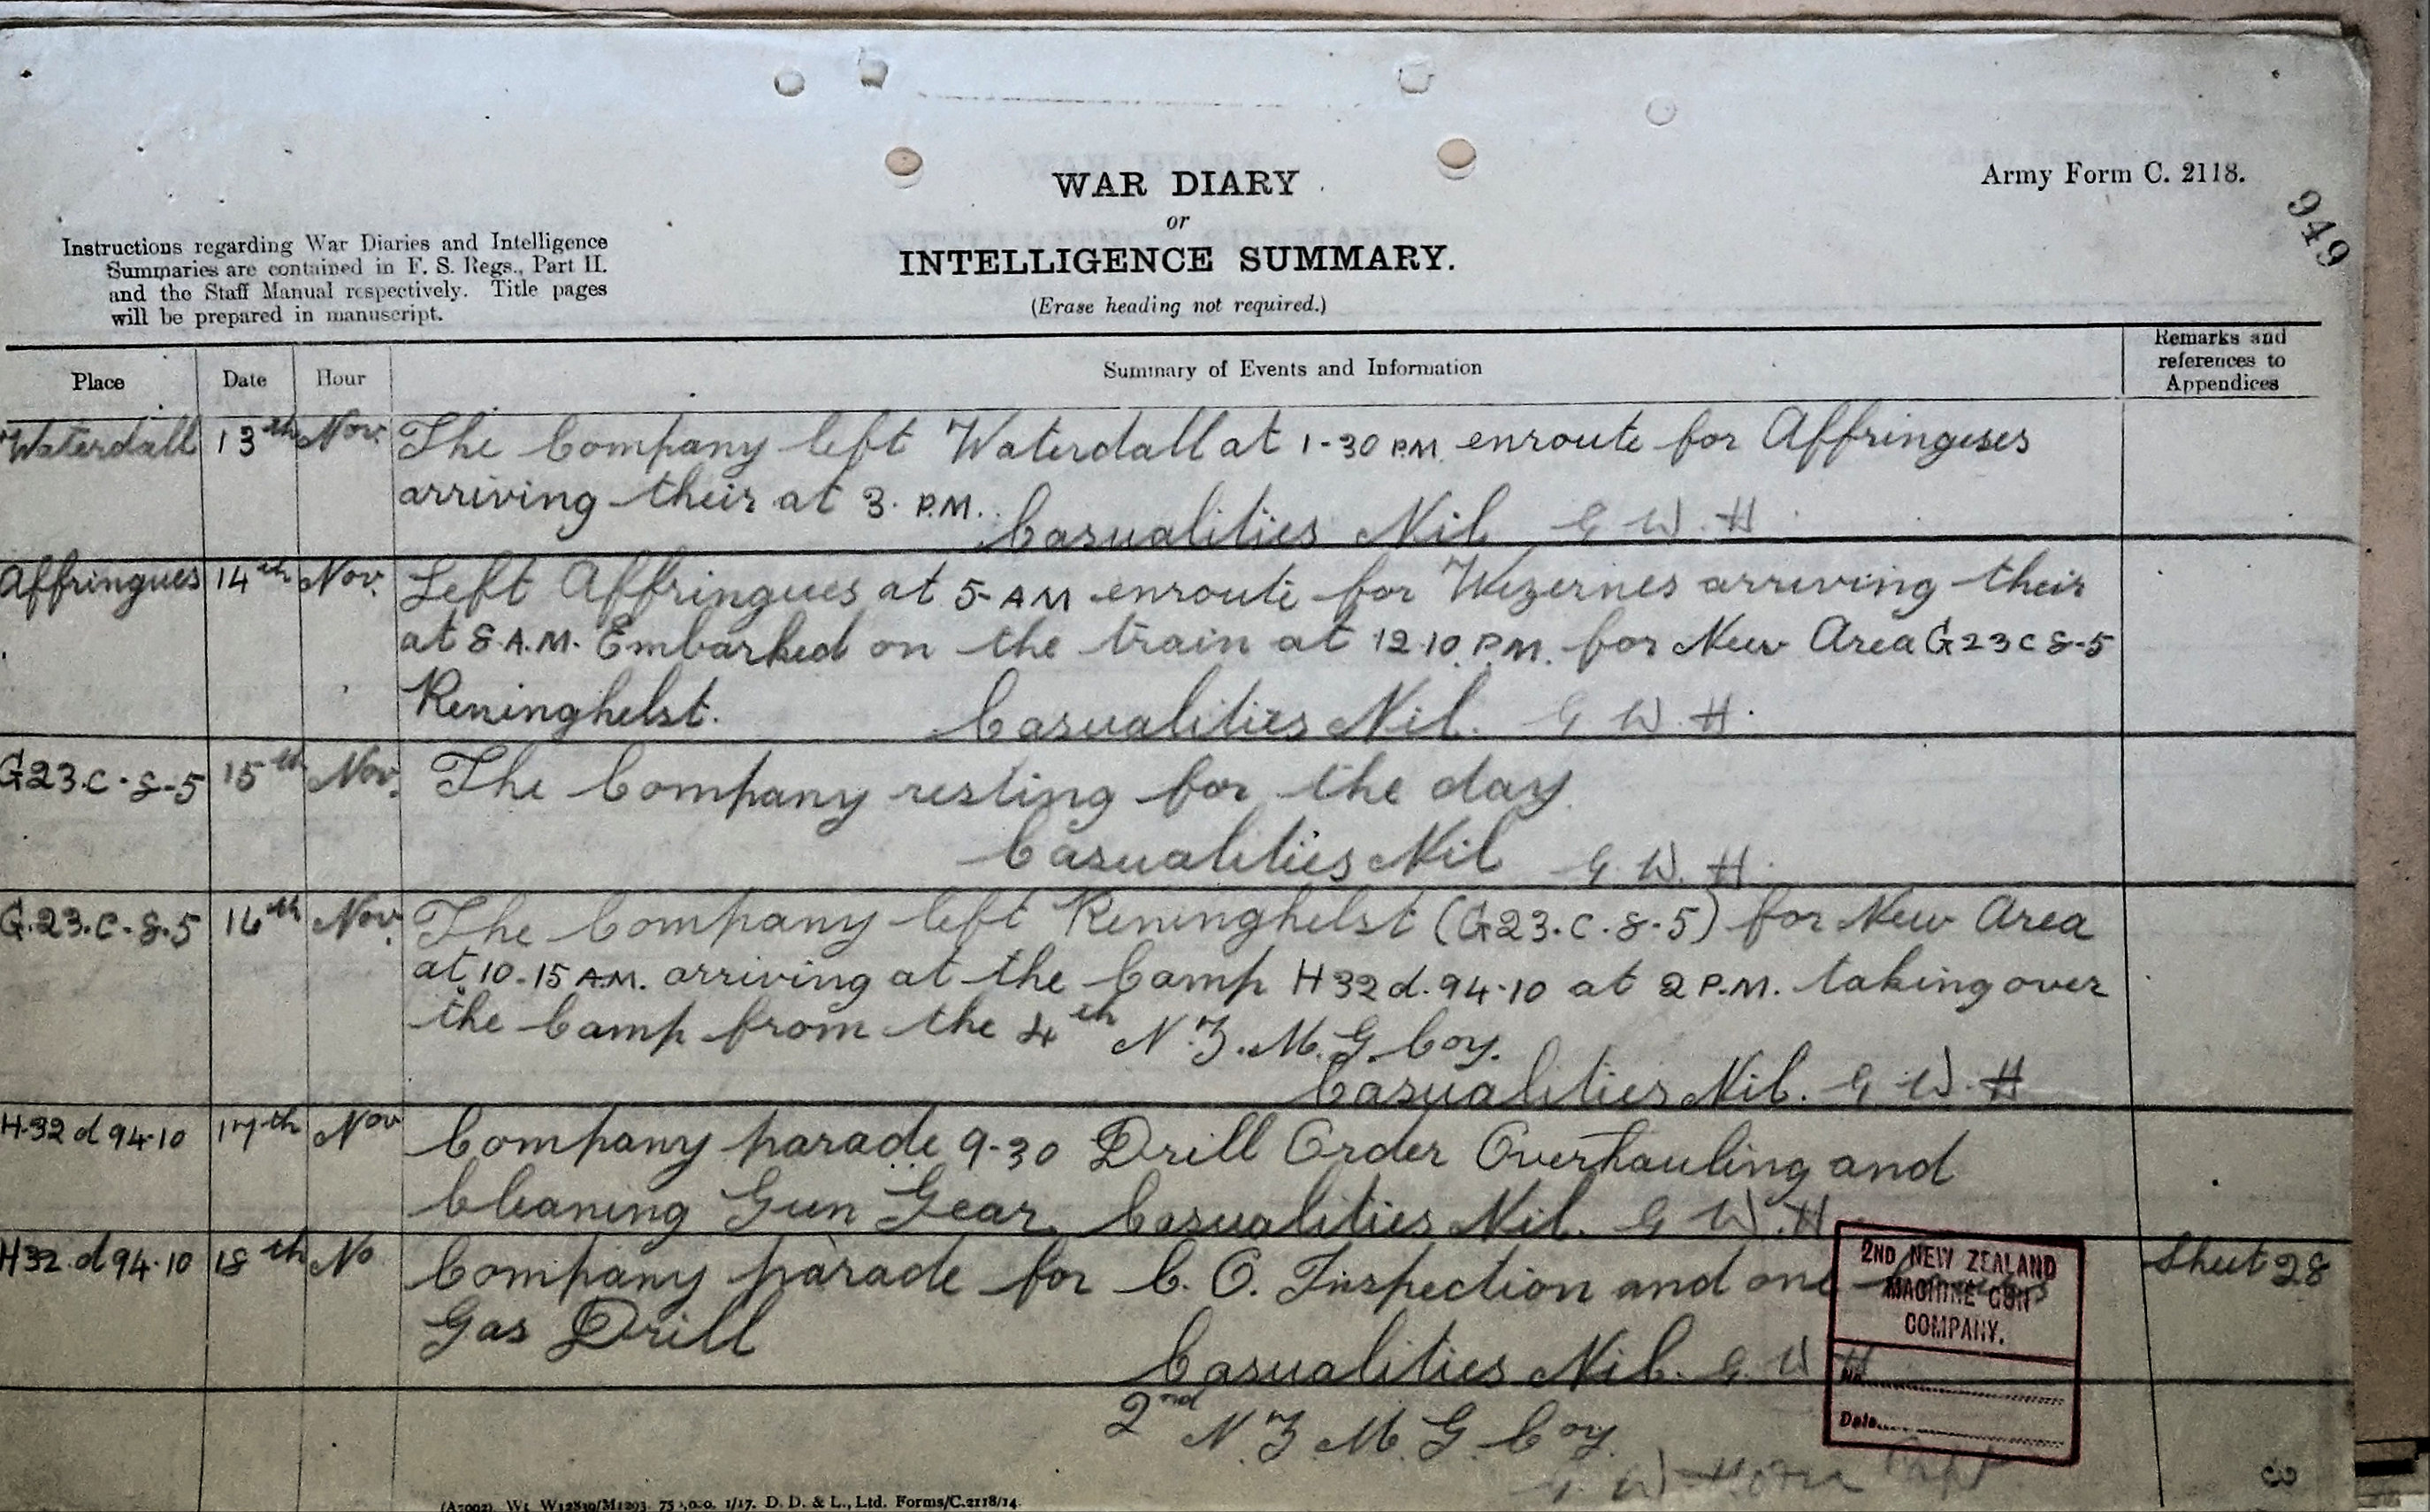 Army Form C. 2118.
949
WAR DIARY
or
INTELLIGENCE SUMMARY.
(Erase heading not required.)
Instructions regarding War Diaries and Intelligence
Summaries are contained in F. S. Regs., Part II.
and the Staff Manual respectively. Title pages
will be prepared in manuscript.
Place Date Hour Summary of Events and Information Remarks and
references to
Appendices
Waterdall 13th Nov. The Company left Waterdall at 1-30 P.M. enroute for Affringues
arriving their at 3. P.M.
Casualities Nil G W. H.
Affringues 14th Nov. Left Affringues at 5-AM enroute for Wizernes arriving their
at 8 A.M. Embarked on the train at 12.10. P.M. for New Area G23 c 8-5
Reninghelst. Casualities Nil. G W. H.
G23.C.8-5 15th Nov. The Company resting for the day.
Casualities Nil G. W. H.
G.23.C.8.5 16th Nov. The Company left Reninghelst (G23.C.8.5) for New Area
at 10-15 A.M. arriving at the Camp H32d.94.10 at 2 P.M. taking over
the Camp from the 4th N.Z.M.G. Coy.
Casualities Nil. G. W. H
H.32 d 94.10 17th Nov Company parade 9-30 Drill Order Overhauling and
Cleaning Gun Gear. Casualities Nil. G W.H
H32.d 94.10 18th No Company parade for C.O. Inspection and one Sheet 28
Gas Drill
Casualities Nil. G. W H
2nd N.Z M. G. Coy.
G. W Horn Capt
2ND NEW ZEALAND
MACHINE GUN
COMPANY.
No.
Date
3
1/17. D. D. & L., Ltd. Forms/C.2118/14.